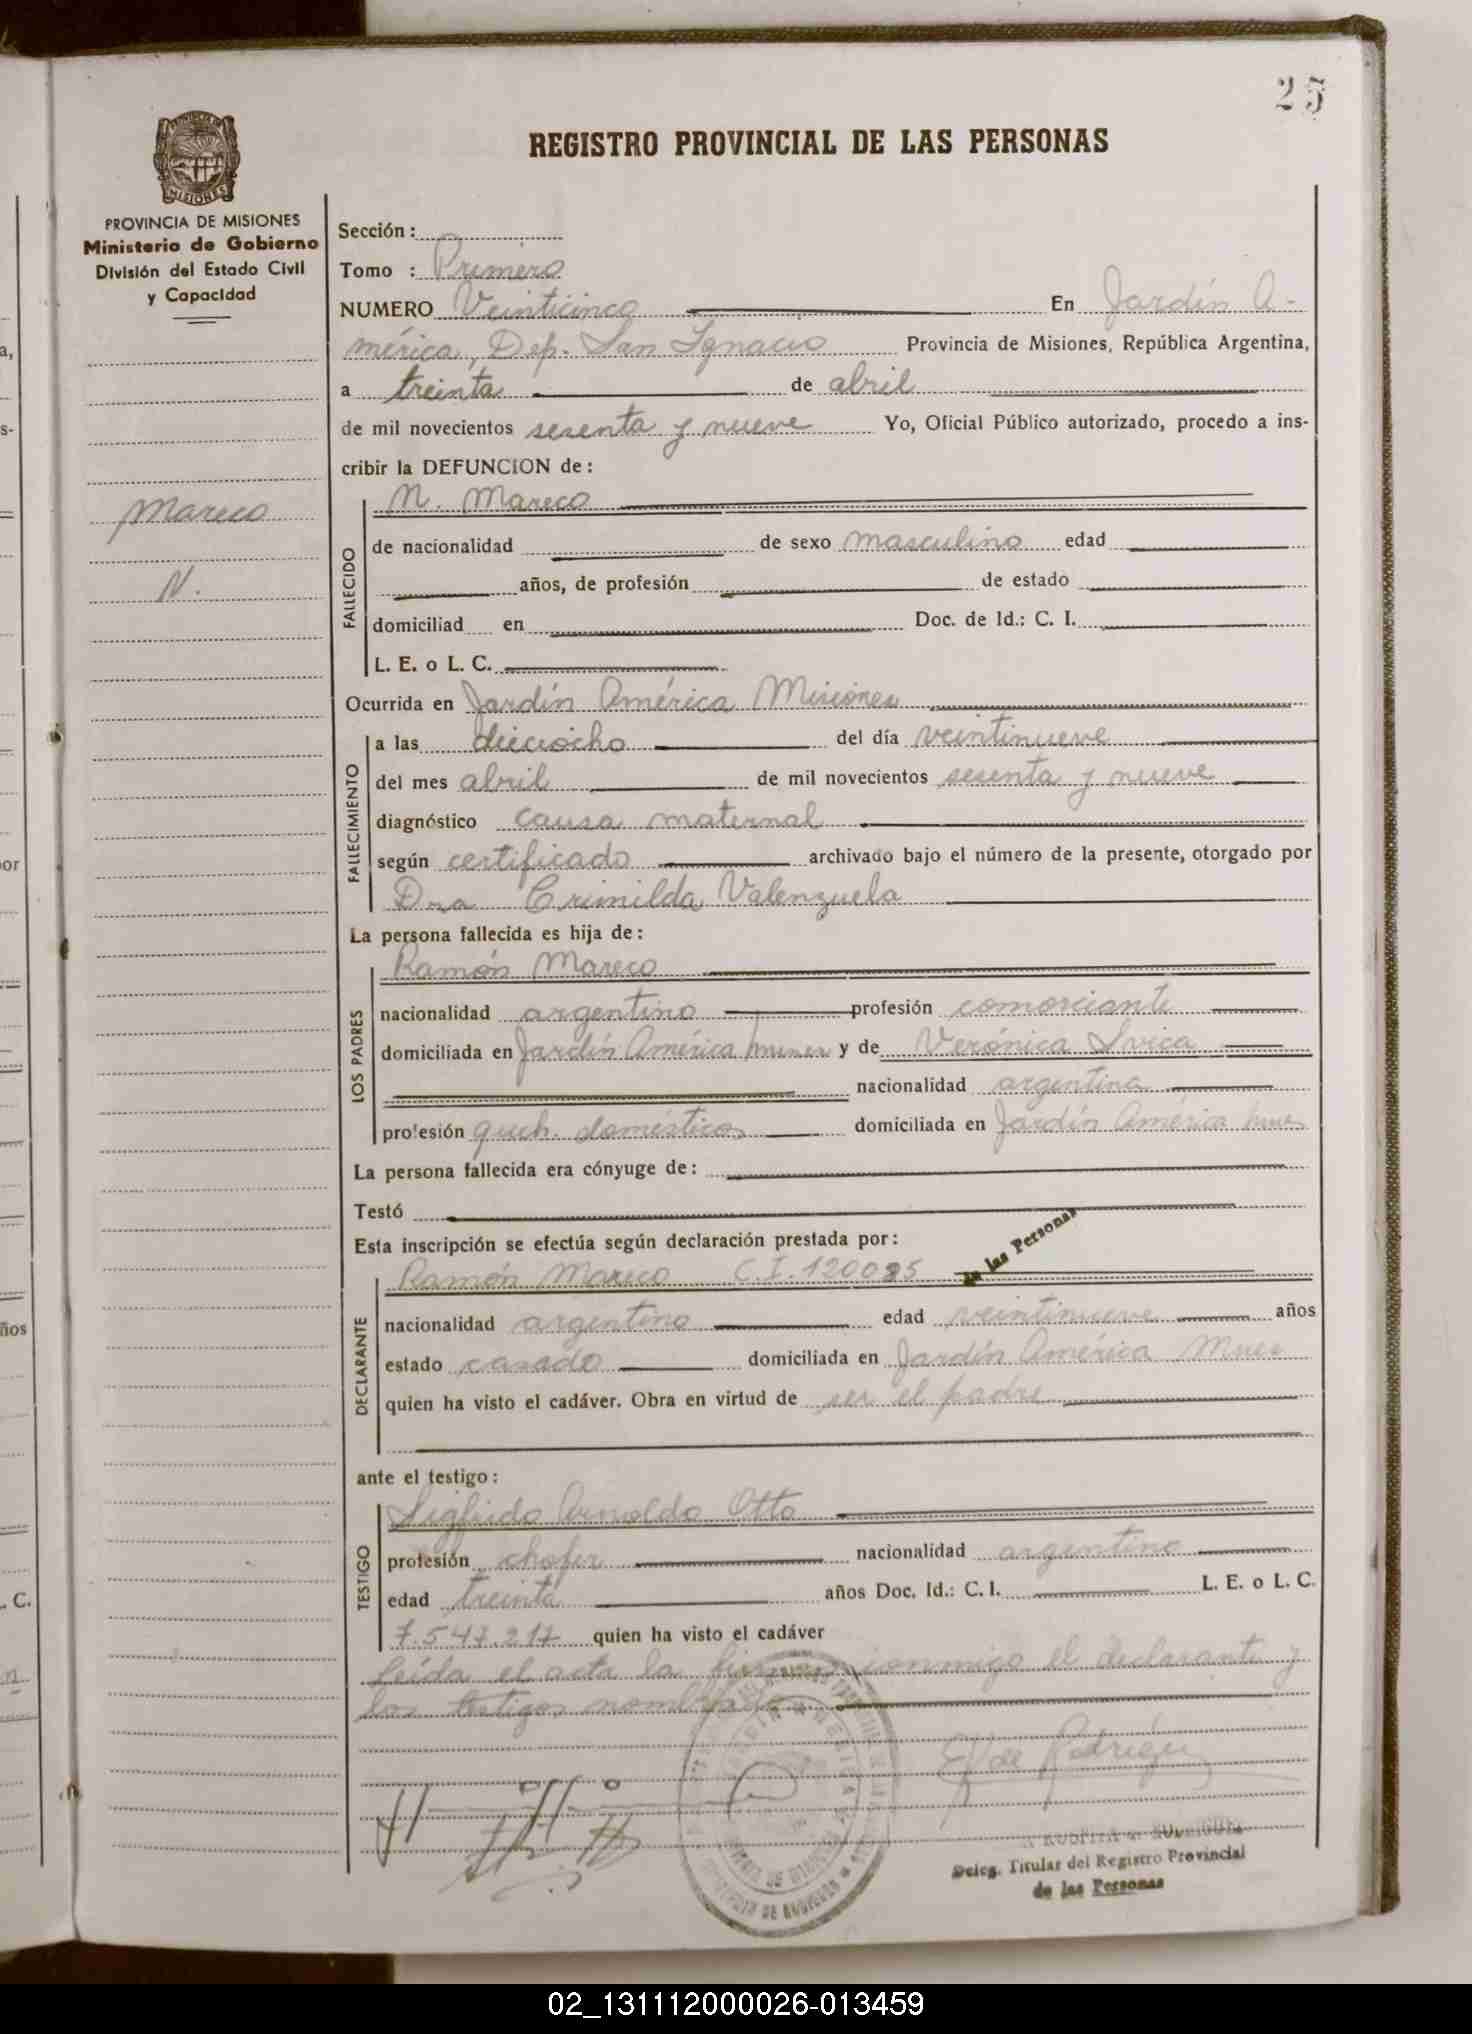 25
REGISTRO PROVINCIAL DE LAS PERSONAS
PROVINCIA DE MISIONES
Ministerio de Gobierno
División del Estado Civil
y Capacidad
Mareco
N.
Sección:
Tomo : Primero
NUMERO Veinticinco En Jardín A-
mérica, Dep. San Ignacio Provincia de Misiones, República Argentina,
a treinta de abril
de mil novecientos sesenta y nueve Yo, Oficial Público autorizado, procedo a ins-
cribir la DEFUNCION de:
N. Mareco
FALLECIDO
de nacionalidad de sexo masculino edad
años, de profesión de estado
domiciliad en Doc. de Id.: C. I.
L. E. o L. C.
Ocurrida en Jardín América Misiones
FALLECIMIENTO
a las dieciocho del día veintinueve
del mes abril de mil novecientos sesenta y nueve
diagnóstico causa maternal
según certificado archivado bajo el número de la presente, otorgado por
Dra Crimilda Valenzuela
La persona fallecida es hija de:
LOS PADRES
Ramón Mareco
nacionalidad argentino profesión comerciante
domiciliada en Jardín América y de Verónica
nacionalidad argentina
profesión queh. domésticos domiciliada en Jardín América
La persona fallecida era cónyuge de:
Testó
Esta inscripción se efectúa según declaración prestada por:
de las Personas
DECLARANTE
Ramón Mareco C.I. 120025
nacionalidad argentino edad veintinueve años
estado casado domiciliada en Jardín América Mnes
quien ha visto el cadáver. Obra en virtud de ser el padre
ante el testigo:
TESTIGO
Sigfrido Arnoldo Otto
profesión chofer nacionalidad argentino
edad treinta años Doc. Id.: C. I. L. E. o L. C.
7.547.217 quien ha visto el cadáver
Leída el acta la firman conmigo el declarante y
los testigos nombrados
E. de Rodriguez
Deleg. Titular del Registro Provincial
de las Personas
02_131112000026-013459